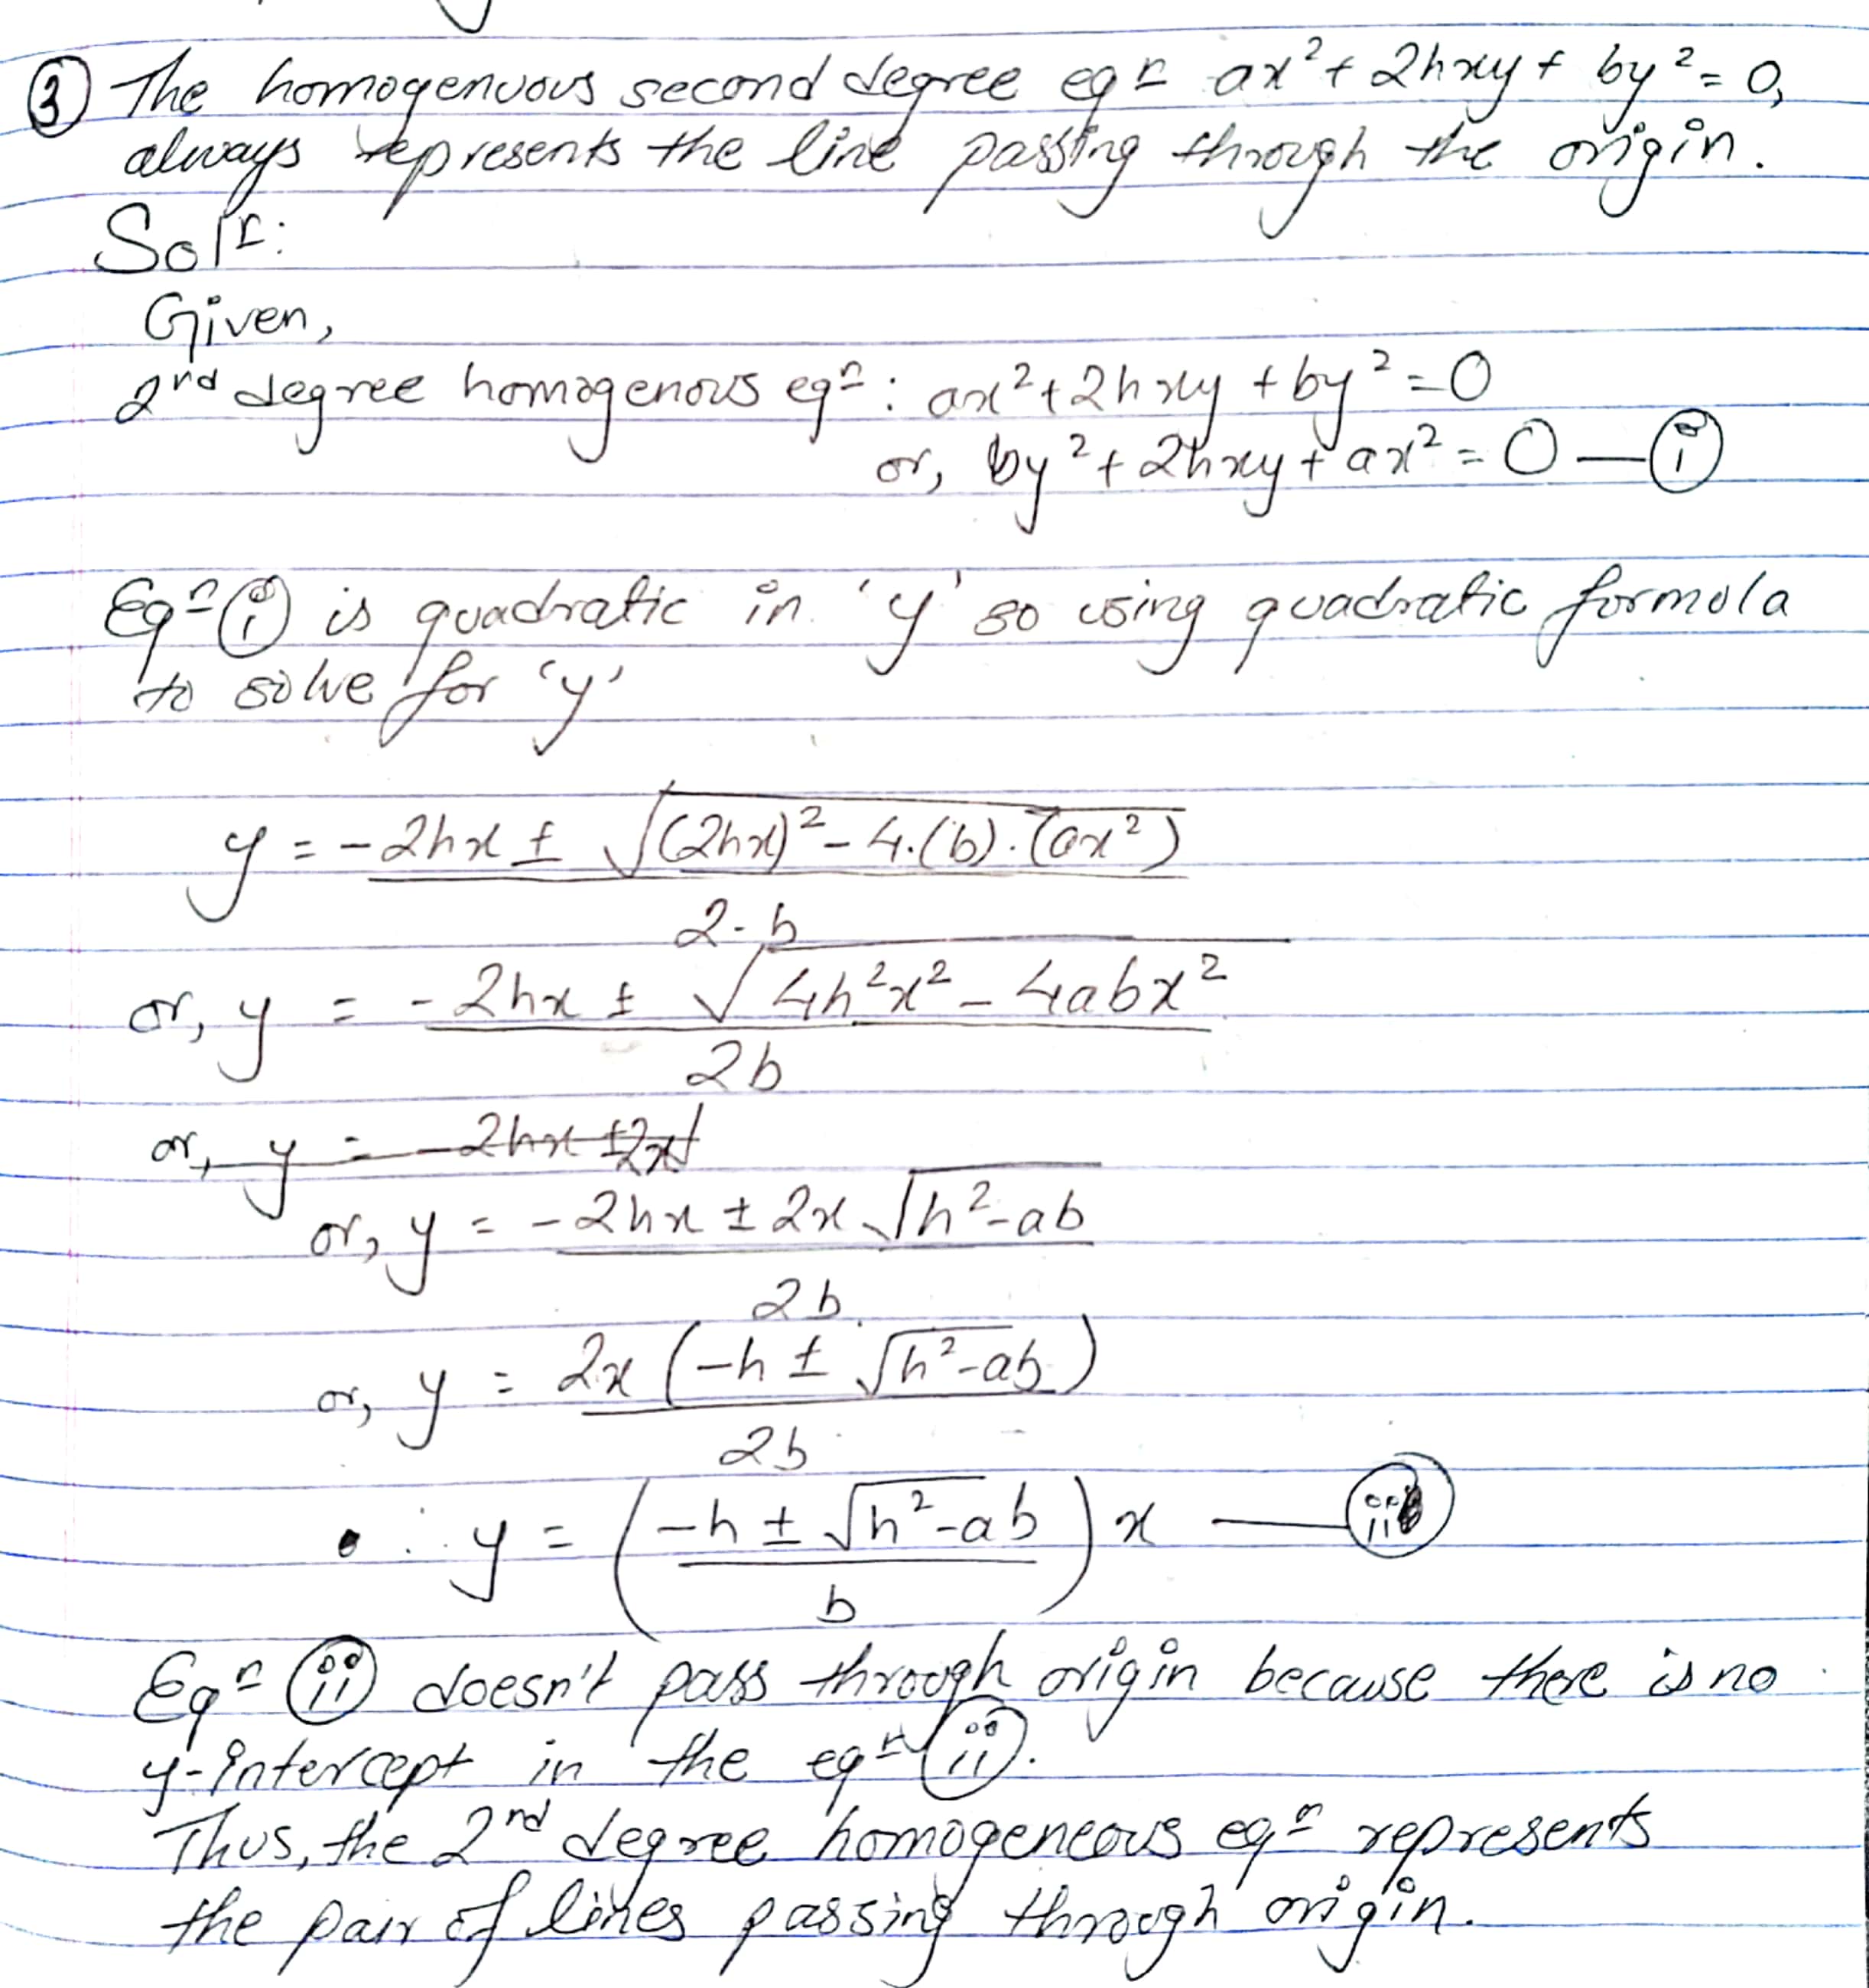 ③ The homogenuous second degree eqⁿ ax² + 2hxy + by² = 0,
always represents the line passing through the origin.
Solⁿ:
Given,
2nd degree homogenous eqⁿ : ax² + 2hxy + by² = 0
or, by² + 2hxy + ax² = 0 — (i)
Eqⁿ (i) is quadratic in 'y' so using quadratic formula
to solve for 'y'
y = -2hx ± √((2hx)² - 4.(b).(ax²))
2.b
or, y = -2hx ± √(4h²x² - 4abx²)
2b
or, y = -2hx ± 2x√
or, y = -2hx ± 2x √(h²-ab)
2b
or, y = 2x (-h ± √(h²-ab))
2b
∴ y = (-h ± √(h²-ab) / b) x — (ii)
Eqⁿ (ii) doesn't pass through origin because there is no
y-intercept in the eqⁿ (ii).
Thus, the 2nd degree homogeneous eqⁿ represents
the pair of lines passing through origin.